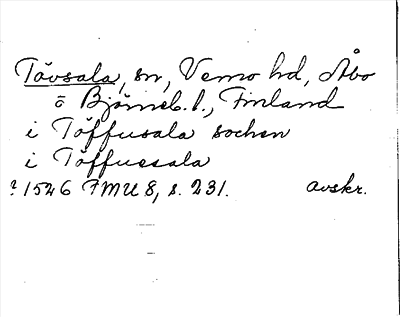 Tövsala, sn, Vemo hd, Åbo
o Björneb. l., Finland
i Töffusala sochen
i Töffuesala
? 1546 FMU 8, s. 231. avskr.